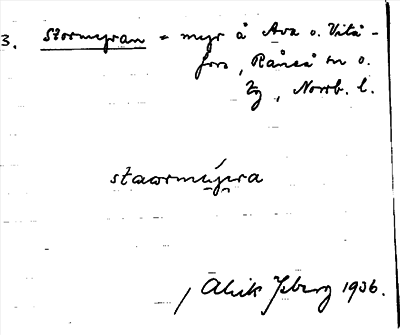 3. Stormyran = myr å Ava o. Vitå-
fors, Råneå sn o.
tg, Norrb. l.
stawrmyra
/ Alrik Ysberg 1936.